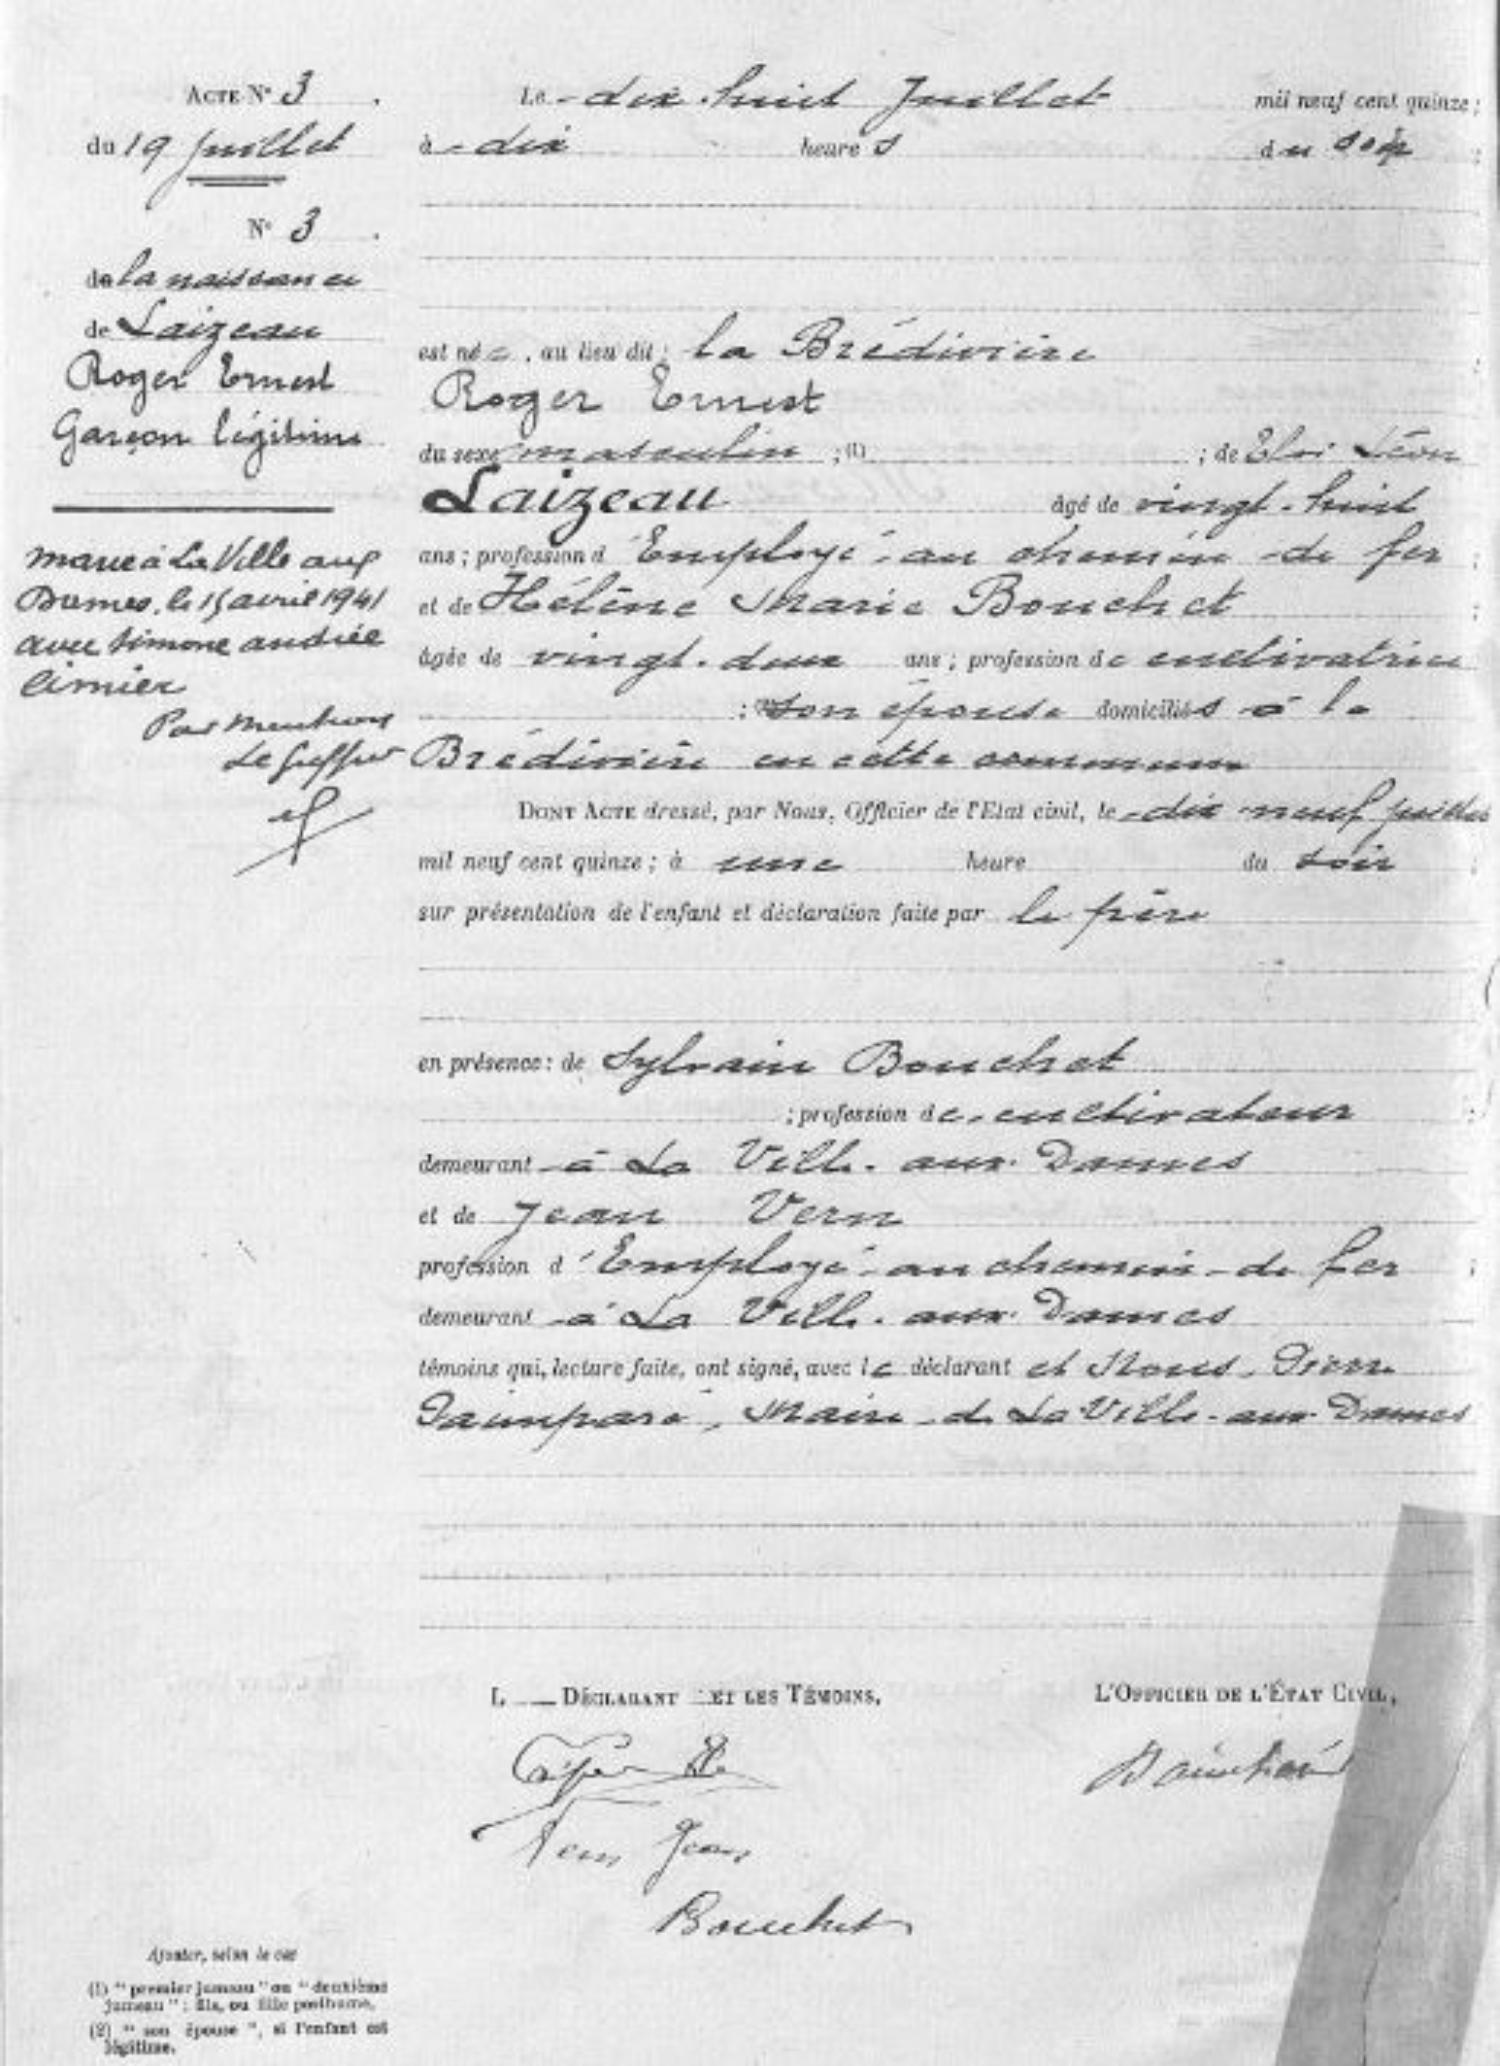 ACTE N° 3
du 19 Juillet
N° 3
de la naissance
de Laizeau
Roger Ernest
Garçon légitime
marié à La Ville aux
Dames, le 15 avril 1941
avec Simone andrée
Limier
Pour mention
Le Greffier
Le dix-huit Juillet mil neuf cent quinze ;
à dix heures du soir ;
est né , au lieu dit : la Brédivière
Roger Ernest
du sexe masculin ; (1) ; de Eloi Léon
Laizeau âgé de vingt-huit
ans ; profession d'Employé au chemin de fer ;
et de Hélène Marie Bouchet ;
âgée de vingt-deux ans ; profession de cultivatrice
; (2) son épouse domiciliés à la
Brédivière en cette commune
DONT ACTE dressé, par Nous, Officier de l'Etat civil, le dix-neuf juillet
mil neuf cent quinze ; à une heure du soir ;
sur présentation de l'enfant et déclaration faite par le père
en présence : de Sylvain Bouchet
; profession de cultivateur ;
demeurant à La Ville-aux-Dames
et de Jean Vern
profession d'Employé au chemin de fer ;
demeurant à La Ville-aux-Dames
témoins qui, lecture faite, ont signé, avec le déclarant et Nous, Pierre
Paimparé, Maire de La Ville-aux-Dames
L DÉCLARANT ET LES TÉMOINS,
L'OFFICIER DE L'ÉTAT CIVIL,
Vern Jean
Bouchet
Ajouter, selon le cas
(1) " premier jumeau " ou " deuxième
jumeau " ; fils, ou fille posthume,
(2) " son épouse ", si l'enfant est
légitime.